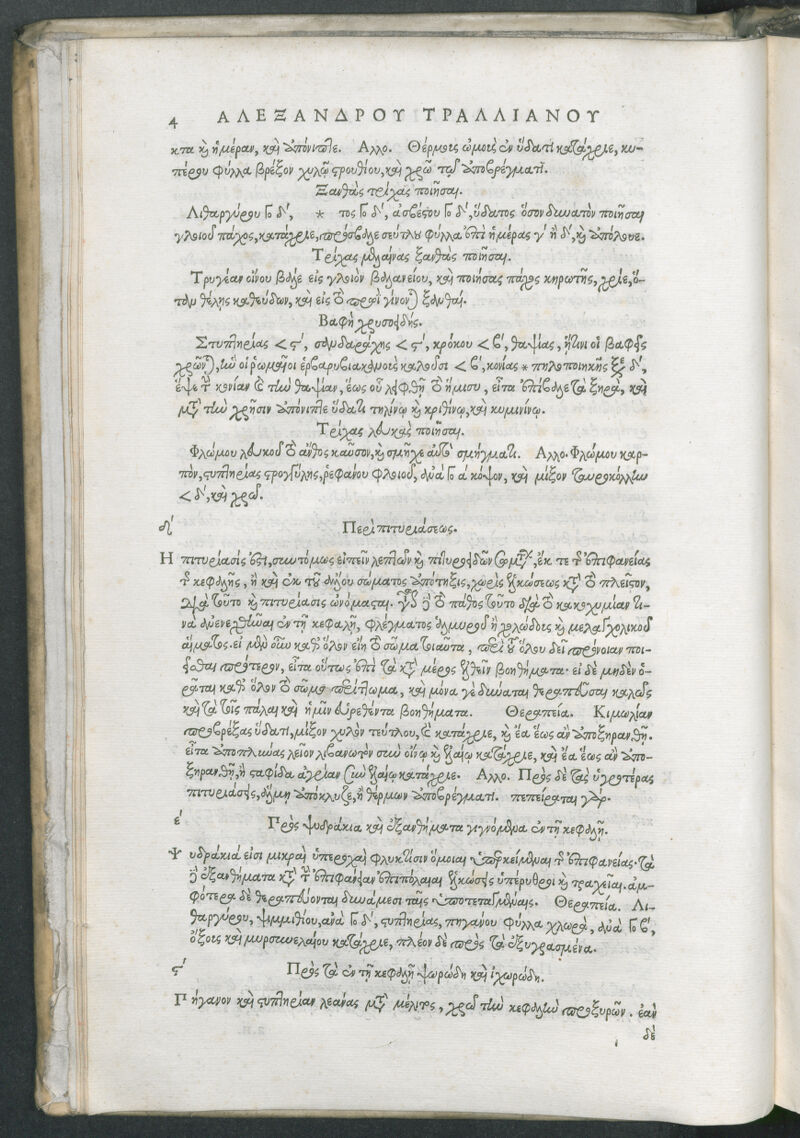 4 ΑΛΕΞΑΝΔΡΟΥ ΤΡΑΛΛΙΑΝΟΥ
κτα καὶ ἡμέραν, καὶ ἀπόνιπτε. Αλλο. Θέρμοις ὠμοὺς ἐν ὕδατι κατάχριε, κυ-
πέρου φύλλα βρέξον χυλῷ στρουθίου, καὶ χρῶ τῷ ἀποβρέγματι.
Ξανθὰς τρίχας ποιῆσαι.
Λιθαργύρου Γο δ΄, * τος Γο δ΄, ἀσβέστου Γο δ΄, ὕδατος ὅσον δυνατὸν ποιῆσαι
γλοιοῦ πάχος, κατάχριε, πρόσβαλε σεύτλου φύλλα ἐπὶ ἡμέρας γ΄ ἢ δ΄, καὶ ἀπόλουε.
Τρίχας μελαίνας ξανθὰς ποιῆσαι.
Τρυγέαν οἴνου βάλε εἰς γλοιὸν βαλανείου, καὶ ποιήσας πάχος κηρωτῆς, χρίε, ὅ-
ταν θέλῃς καθεύδων, καὶ εἰς τὸ πρωῒ γίνονται ξανθαί.
Βαφὴ χρυσοειδής.
Στυπτηρίας < ϛ΄, σανδαράχης < ϛ΄, κρόκου < β΄, θαψίας, ᾗτινι οἱ βαφεῖς
χρῶνται, ἣν οἱ ῥωμαῖοι ἑρβαρουβιακάμους καλοῦσι < β΄, κονίας * πηλοποιικῆς ξε δ΄,
ἕψε τὴν κονίαν καὶ τὴν θαψίαν, ἕως οὗ λειφθῇ τὸ ἥμισυ, εἶτα ἐπίβαλε τὰ ξηρὰ, καὶ
μετὰ τὴν χρῆσιν ἀπόνιπτε ὕδατι τηλίνῳ καὶ κριθίνῳ, καὶ κυμινίνῳ.
Τρίχας λευκὰς ποιῆσαι.
Φλώμου λευκοῦ τὸ ἄνθος καῦσον, καὶ σμῆχε αὐτῷ σμήγματι. Αλλο. Φλώμου καρ-
πὸν, στυπτηρίας στρογγύλης, ῥεφάνου φλοιοῦ, ἀνὰ Γο ἁ κόψον, καὶ μίξον ταυροκόλλαν
< δ΄, καὶ χρῶ.
δ΄ Περὶ πιτυριάσεως.
Η πιτυρίασίς ἐστι, συντόμως εἰπεῖν λεπτῶν καὶ πιτυροειδῶν σωμάτων, ἔκ τε τῆς ἐπιφανείας
τῆς κεφαλῆς, ἢ καὶ ἐκ τοῦ ἄλλου σώματος ἀπότηξις, χωρὶς ἑλκώσεως κατὰ τὸ πλεῖστον,
διὰ τοῦτο καὶ πιτυρίασις ὠνόμασται. γίνεται δὲ τὸ πάθος τοῦτο διὰ τὸ κακοχυμίαν τι-
νὰ ἀνενεχθῆναι ἐν τῇ κεφαλῇ, φλέγματος ἁλμυροῦ ἢ χολώδους καὶ μελαγχολικοῦ
αἵματος. εἰ μὲν οὖν καθ' ὅλον εἴη τὸ σῶμα τοιαῦτα, περὶ τοῦ ὅλου δεῖ πρόνοιαν ποι-
εῖσθαι πρότερον, εἶτα οὕτως ἐπὶ τὰ κατὰ μέρος ἐλθεῖν βοηθήματα· εἰ δὲ μηδὲν ὁ-
ρᾶται καθ' ὅλον τὸ σῶμα περίττωμα, καὶ μόνα γε δύναται θεραπεῦσαι καλῶς
καὶ τὰ τοῖς πάλαι καὶ ἡμῖν εὑρεθέντα βοηθήματα. Θεραπεία. Κιμωλίαν
προβρέξας ὕδατι, μίξον χυλὸν τεύτλου, καὶ κατάχριε, καὶ ἔα ἕως ἂν ἀποξηρανθῇ.
εἶτα ἀποπλύνας λεῖον λιβανωτὸν σὺν οἴνῳ καὶ ἐλαίῳ κατάχριε, καὶ ἔα ἕως ἂν ἀπο-
ξηρανθῇ, ἢ σταφίδα ἀγρίαν σὺν ἐλαίῳ κατάχριε. Αλλο. Πρὸς δὲ τὰς ὑγροτέρας
πιτυριάσεις, ἅλμῃ ἀπόκλυζε, ἢ θέρμων ἀποβρέγματι. πεπείραται γάρ.
ε΄ Πρὸς ψυδράκια καὶ ἐξανθήματα γιγνόμενα ἐν τῇ κεφαλῇ.
Ψυδράκιά εἰσι μικραὶ ὑπεροχαὶ φλυκτίσιν ὅμοιαι ὑπερκείμεναι τῆς ἐπιφανείας· τὰ
δὲ ἐξανθήματα κατὰ τὴν ἐπιφάνειαν ἐπιπόλαιαι ἑλκώσεις ὑπέρυθροι καὶ τραχεῖαι. ἀμ-
φότερα δὲ θεραπεύονται δυνάμεσι ταῖς ὑποτεταγμέναις. Θεραπεία. Λι-
θαργύρου, ψιμμιθίου, ἀνὰ Γο δ΄, στυπτηρίας, πηγάνου φύλλα χλωρὰ, ἀνὰ Γο β΄,
ὄξους καὶ μυρσινελαίου κατάχριε, πλέον δὲ πρὸς τὰ ἐξυγρασμένα.
ϛ΄ Πρὸς τὰ ἐν τῇ κεφαλῇ ψωρώδη καὶ ἰχωρώδη.
Πήγανον καὶ στυπτηρίαν λεάνας μετὰ μέλιτος, χρῶ τὴν κεφαλὴν προξυρῶν. ἐὰν
δὲ